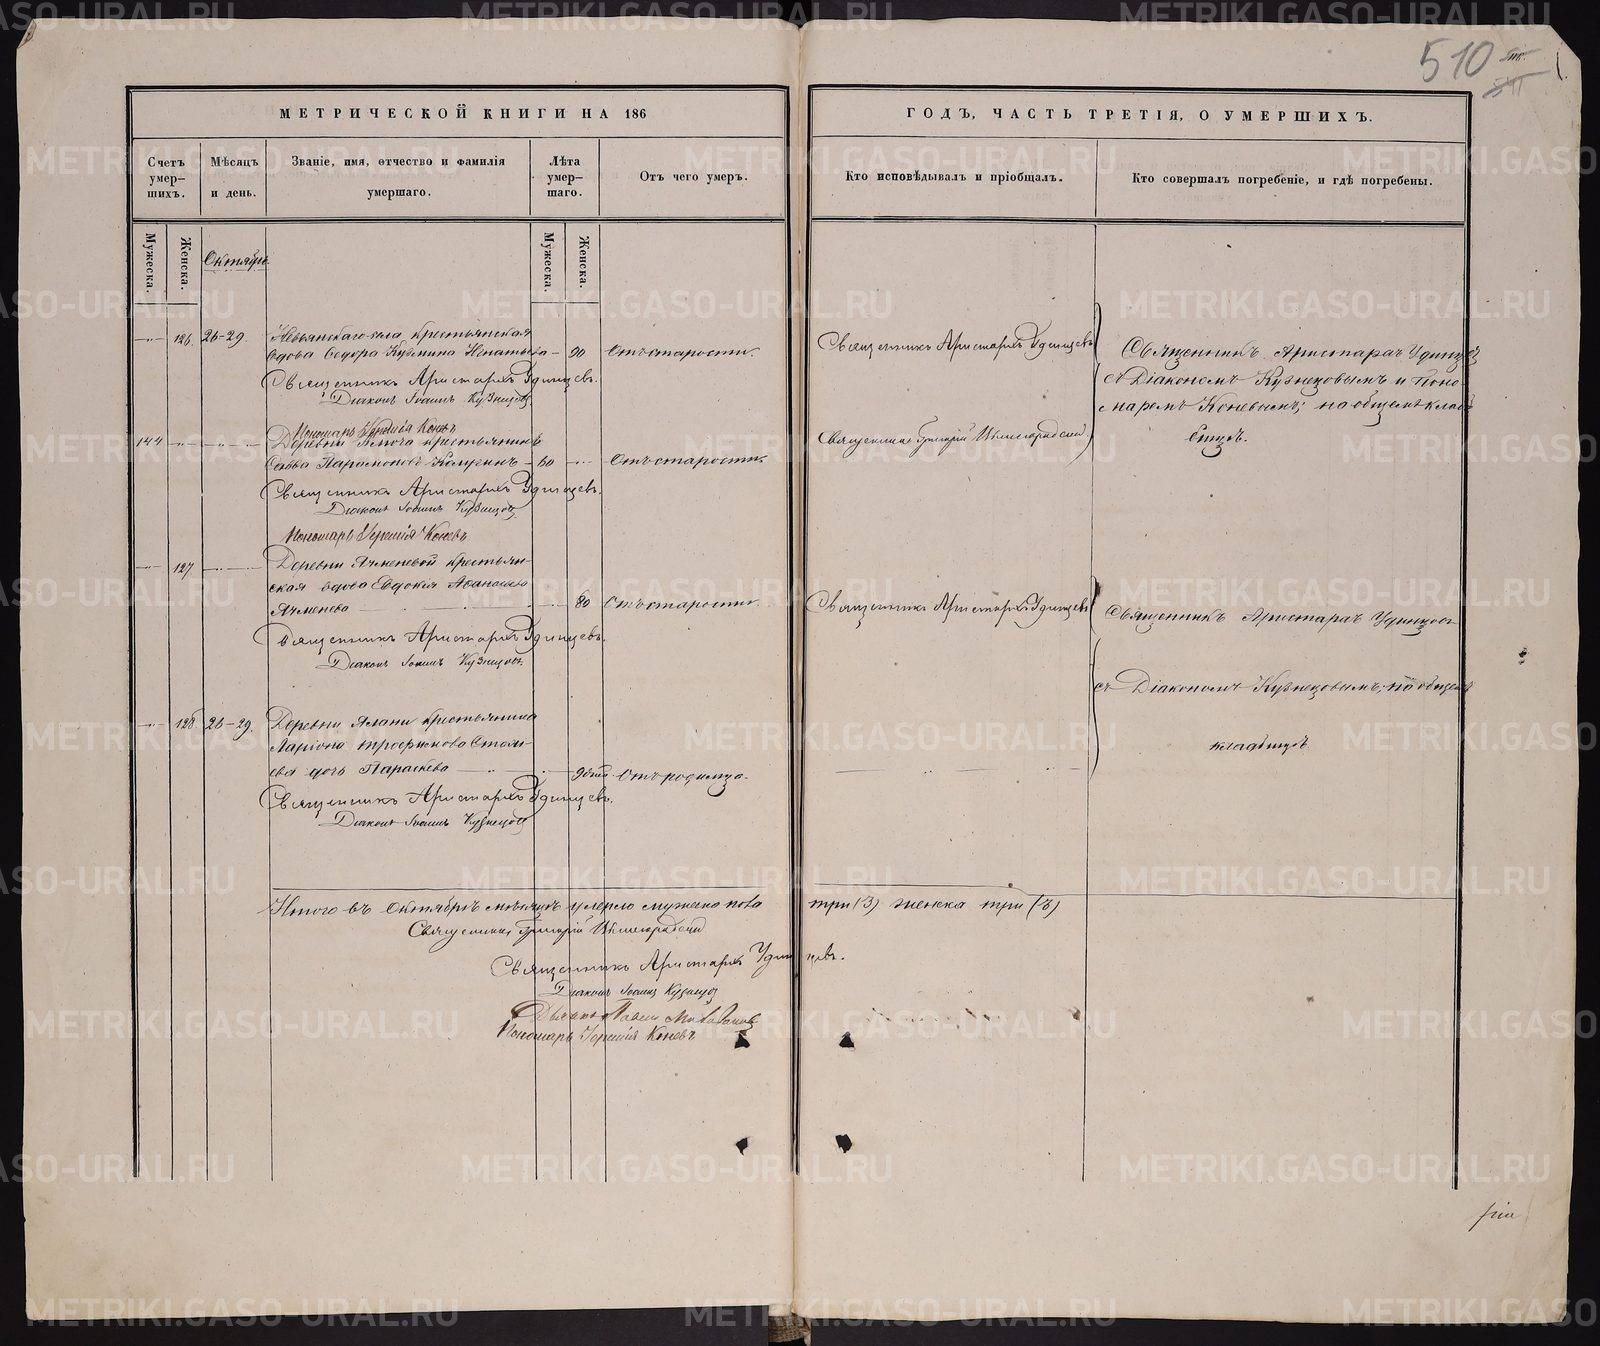 510
МЕТРИЧЕСКОЙ КНИГИ НА 186
ГОДЪ, ЧАСТЬ ТРЕТІЯ, О УМЕРШИХЪ.
Счетъ умер–шихъ.
Мѣсяцъ и день.
Званіе, имя, отчество и фамилія умершаго.
Лѣта умер–шаго.
Отъ чего умеръ.
Кто исповѣдывалъ и пріобщалъ.
Кто совершалъ погребеніе, и гдѣ погребены.
Мужеска.
Женска.
Октябрь
Мужеска.
Женска.
126. 26–29. Невьянскаго села крестьянская
вдова Ѳедора Кузмина — 90 Отъ старости.
Священникъ Аристархъ Удинцевъ.
Діаконъ Іоаннъ Кузнецовъ
Пономарь Коневъ
Священникъ Аристархъ Удинцевъ
Священникъ Аристархъ Удинцевъ
съ Діакономъ Кузнецовымъ и Поно-
маремъ Коневымъ; на общемъ клад-
бищѣ.
144 Деревни Ключа крестьянинъ
Савва Парамоновъ — 60 Отъ старости.
Священникъ Аристархъ Удинцевъ.
Діаконъ Іоаннъ Кузнецовъ
Пономарь Коневъ
Священникъ Григорій
127 Деревни Ячменевой крестьян-
ская вдова Евдокія Аѳанасьева
Ячменева 80 Отъ старости.
Священникъ Аристархъ Удинцевъ.
Діаконъ Іоаннъ Кузнецовъ.
Священникъ Аристархъ Удинцевъ
Священникъ Аристархъ Удинцевъ
съ Діакономъ Кузнецовымъ; на общемъ
кладбищѣ
128. 26–29. Деревни Ялани крестьянина
Ларіона Трофимова
дочь Параскева Отъ родимца.
Священникъ Аристархъ Удинцевъ.
Діаконъ Іоаннъ Кузнецовъ
Итого въ Октябрѣ мѣсяцѣ умерло мужеска пола три (3) женска три (3)
Священникъ Григорій
Священникъ Аристархъ Удинцевъ.
Діаконъ Іоаннъ Кузнецовъ
Пономарь Коневъ
METRIKI.GASO-URAL.RU